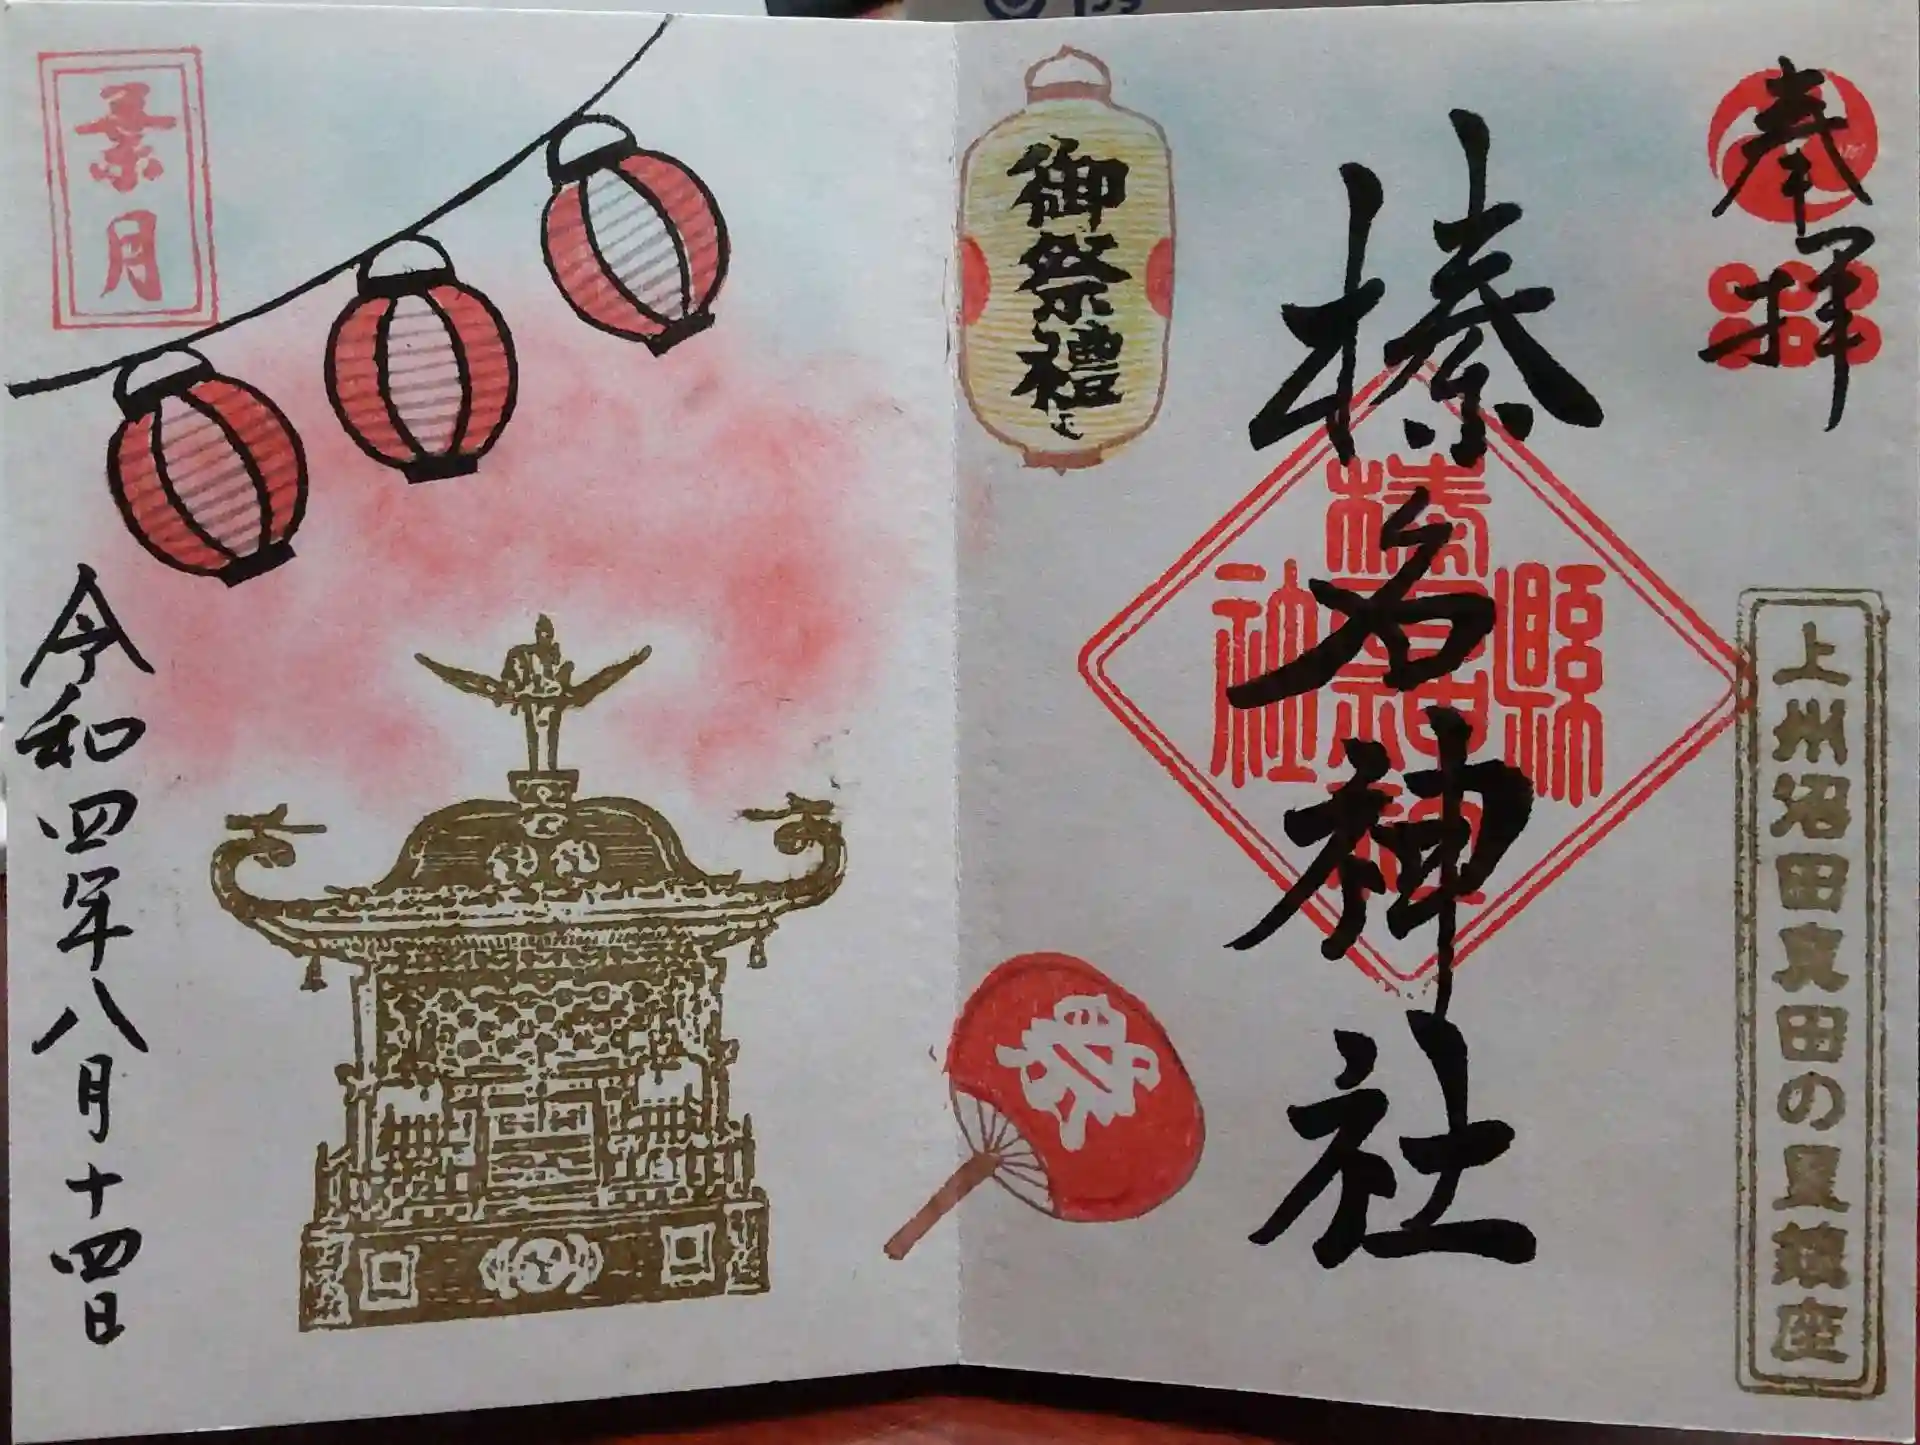 奉拝
上州沼田真田の里鎮座
榛名神社
縣社
榛名神社
御祭禮
祭
葉月
令和四年八月十四日